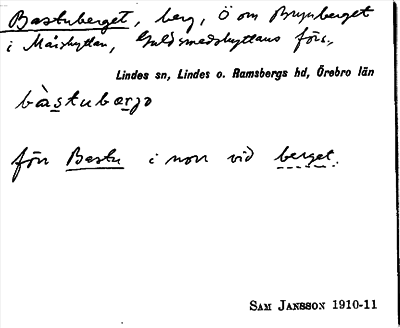 Bastuberget, berg, Ö om Brynberget
i Måshyttan, Guldsmedshyttans förs.,
Lindes sn, Lindes o. Ramsbergs hd, Örebro län
bàstubærjə
förr Bastu i norr vid berget.
SAM JANSSON 1910-11